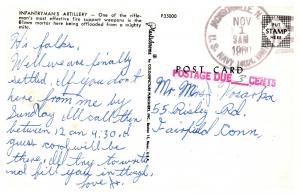 INFANTRYMAN'S ARTILLERY — One of the rifle-
man's most effective fire support weapons is the
81mm mortar here being offloaded from a mighty
mite.
P35800
Hi folks,
Well we are finally
settled. If you don't
hear from me by
Sunday I'll call then
between 12 am 4:30. I
guess cond will be
there. I'll try to write
and fill you in then.
love Jr.
NOV
9 AM
PLACE
STAMP
HERE
POST CARD
POSTAGE DUE 5 CENTS
Mr. Mrs. J. Posarka
55 Risley Rd
Fairfield Conn.